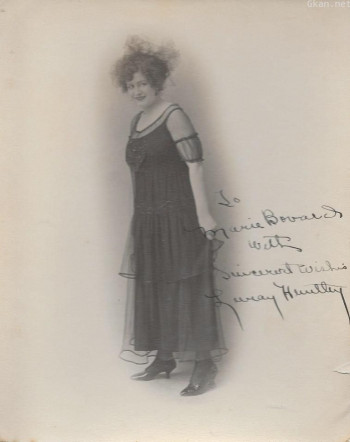 Gkan.net
To
Marie Bovard
with
Sincerest Wishes
Luray Huntley